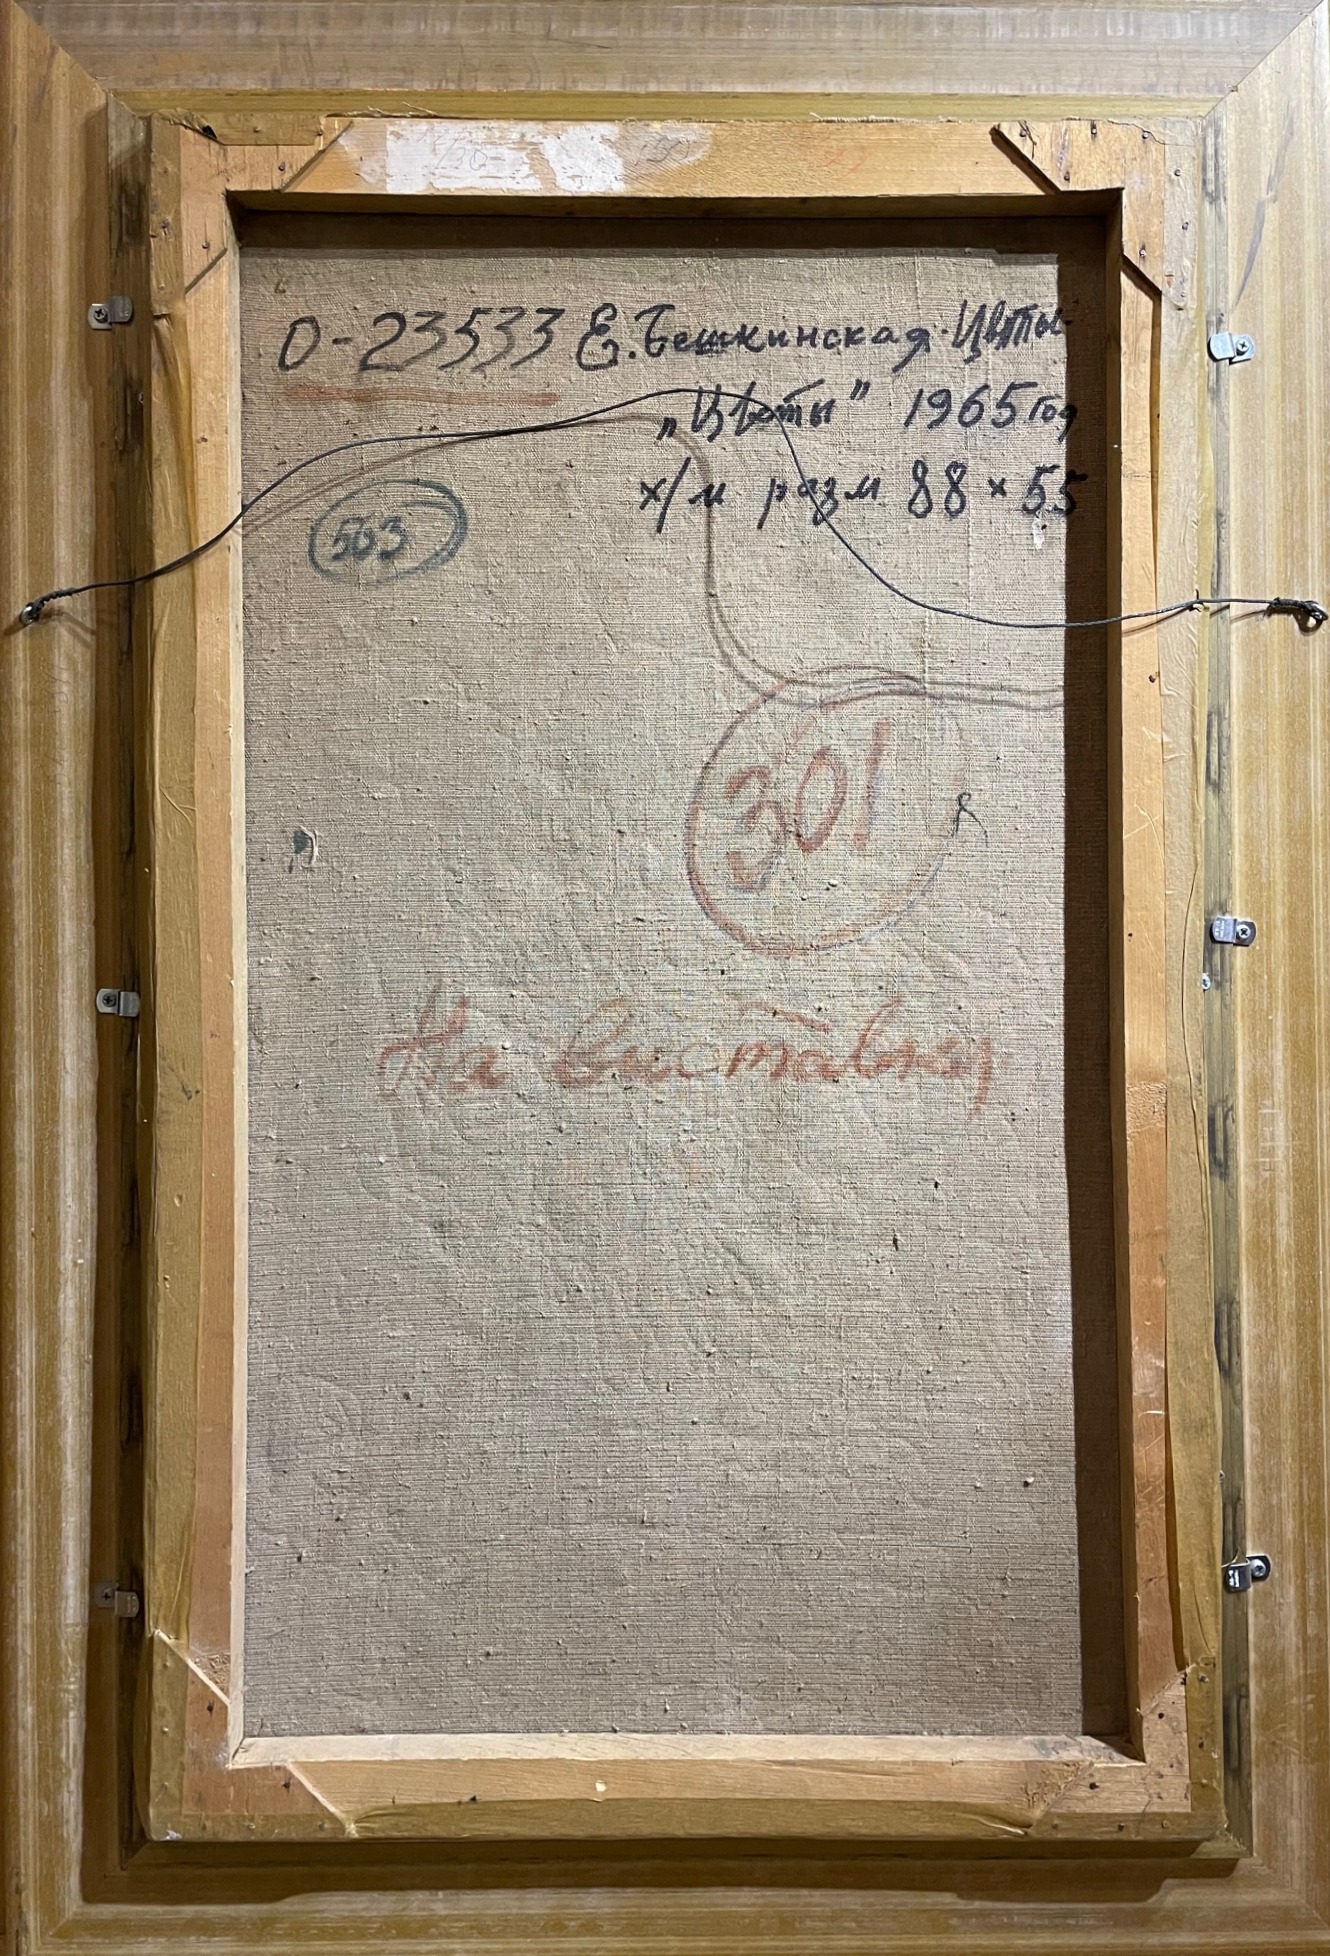 О-23533 Е. Бешкинская. Цветы
„Цветы" 1965 год
х/м разм 88 × 55
503
301
На виставку